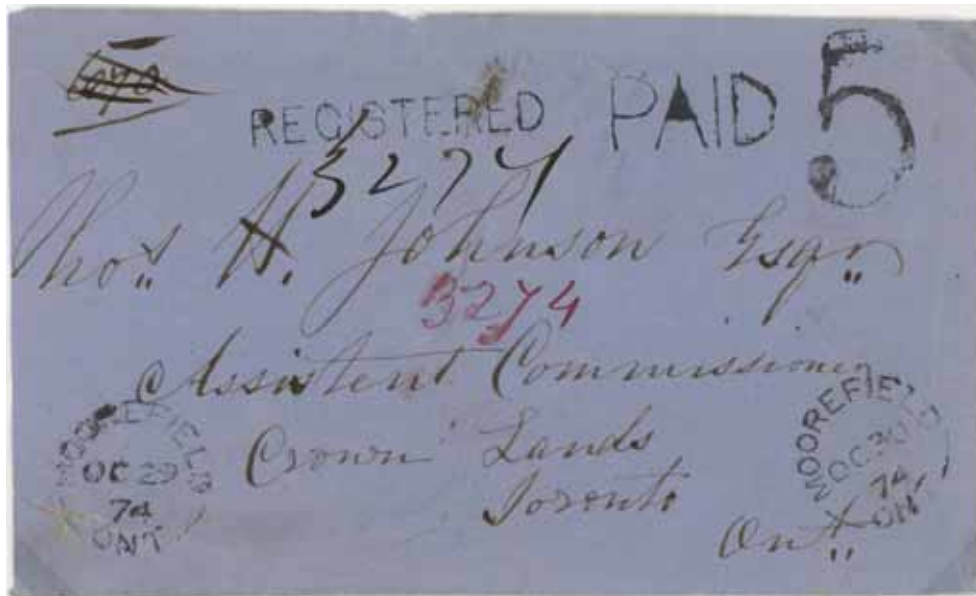 REGISTERED PAID 5
3274
Thos. H. Johnson Esqr.
3274
Assistent Commissioner
Crown Lands
Toronto
Ont
MOOREFIELD
OC 29
74
ONT
MOOREFIELD
OC 30
74
ONT